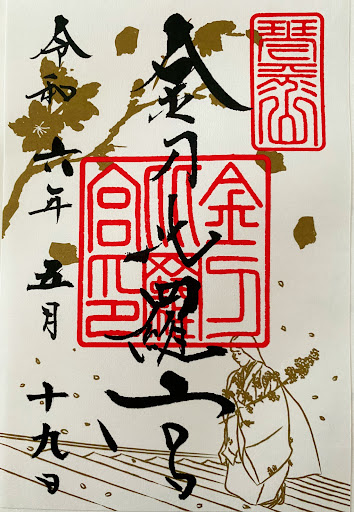 琴平山
金刀比羅宮
金刀
比羅
宮印
令和六年五月十九日